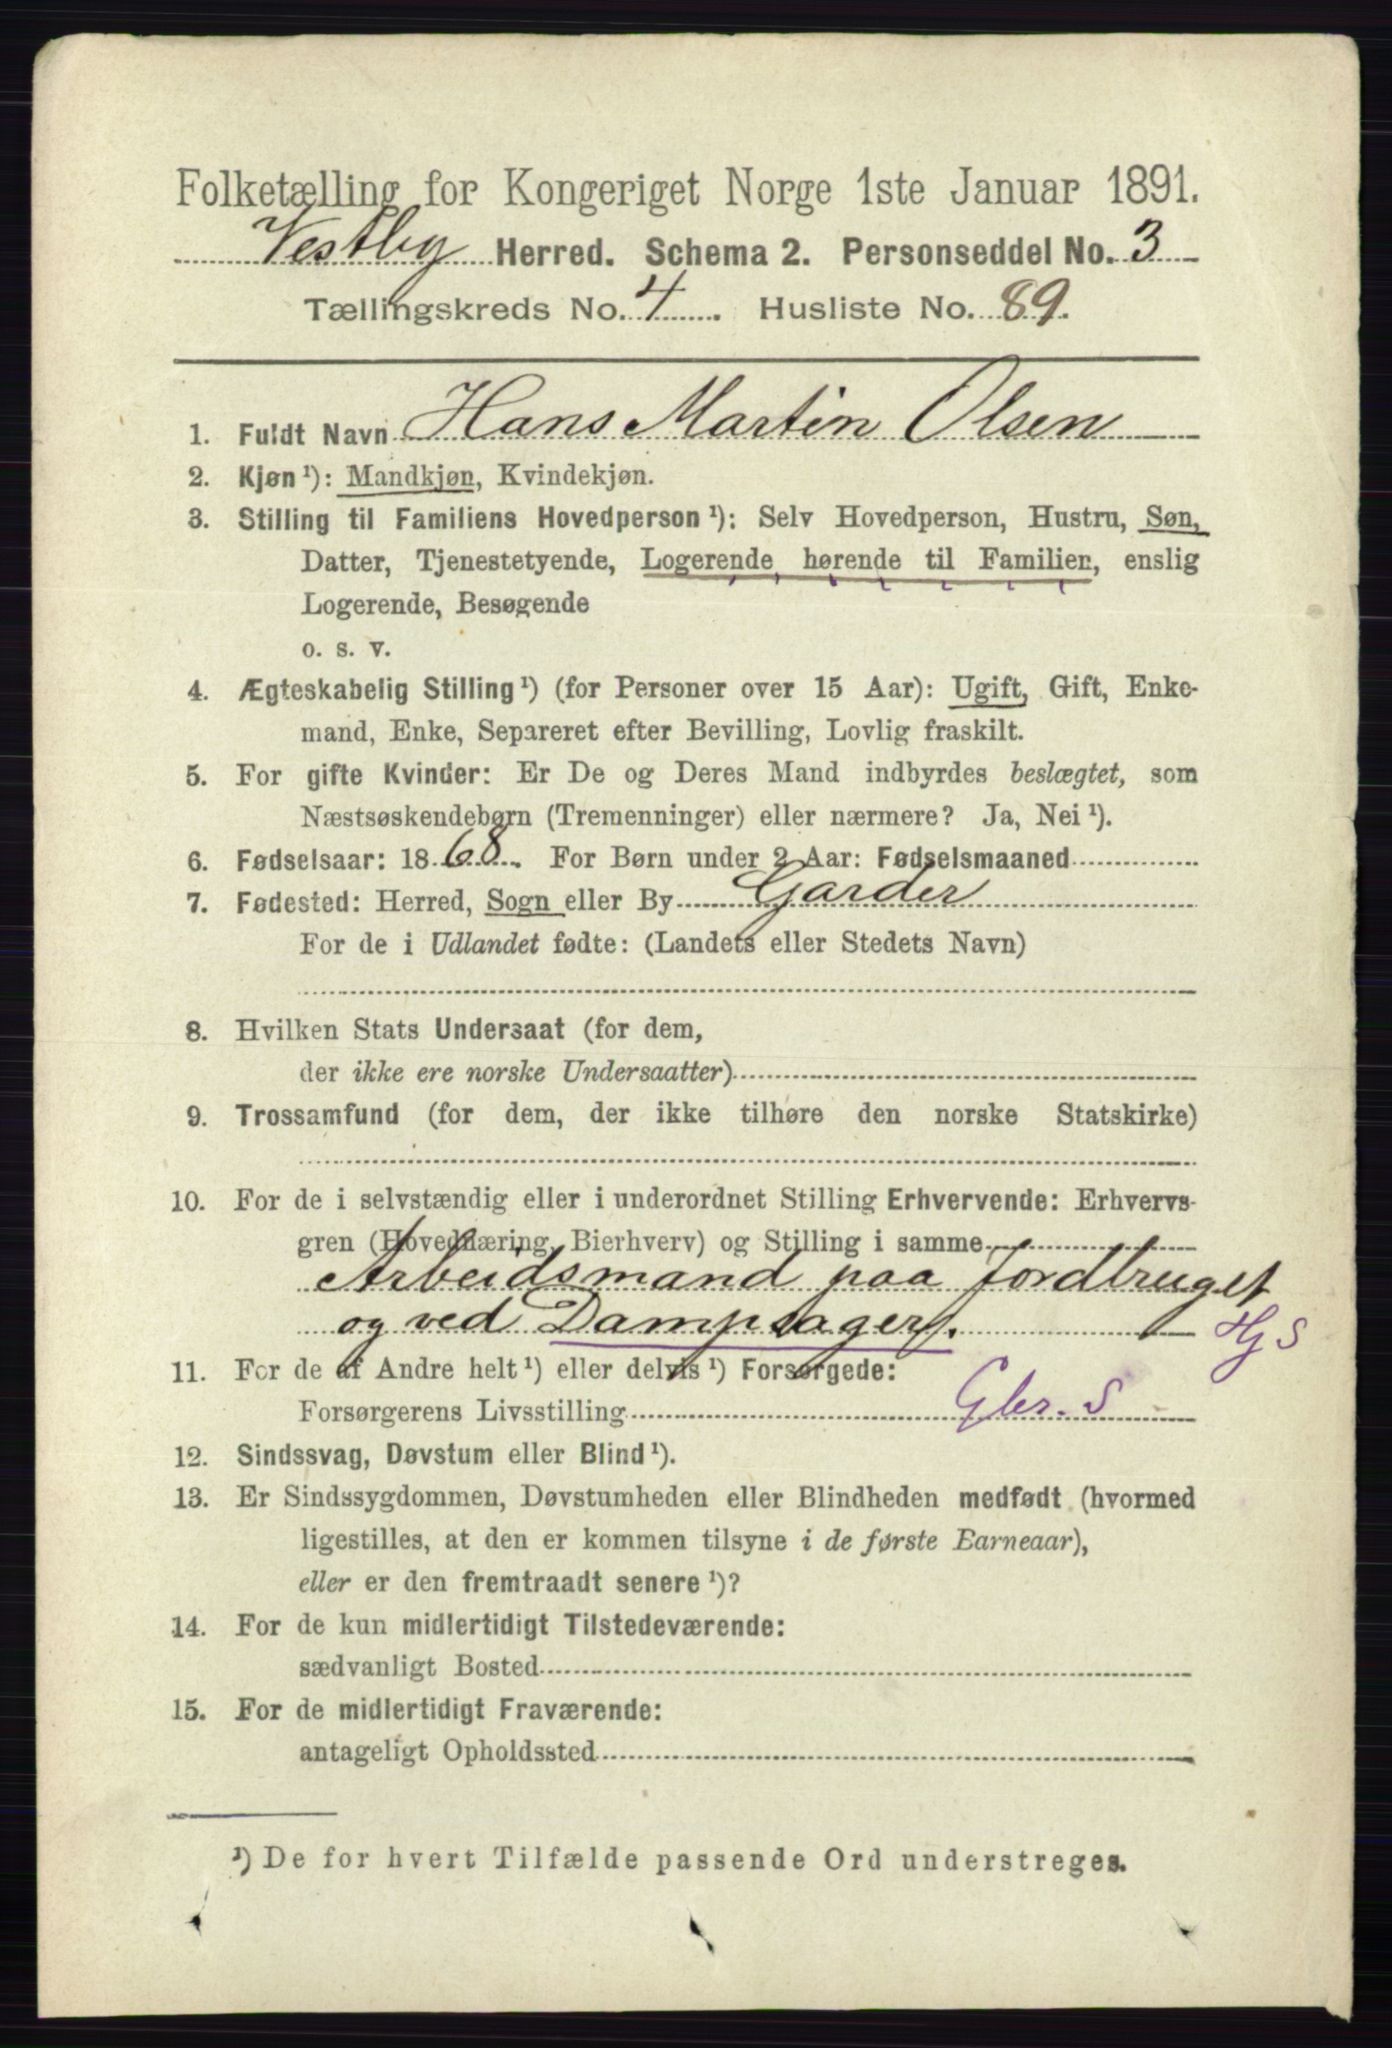 Folketælling for Kongeriget Norge 1ste Januar 1891.
Vestby Herred. Schema 2. Personseddel No. 3
Tællingskreds No. 4. Husliste No. 89.
1. Fuldt Navn Hans Martin Olsen
2. Kjøn¹): Mandkjøn, Kvindekjøn.
3. Stilling til Familiens Hovedperson¹): Selv Hovedperson, Hustru, Søn,
Datter, Tjenestetyende, Logerende hørende til Familien, enslig
Logerende, Besøgende
o. s. v.
4. Ægteskabelig Stilling¹) (for Personer over 15 Aar): Ugift, Gift, Enke-
mand, Enke, Separeret efter Bevilling, Lovlig fraskilt.
5. For gifte Kvinder: Er De og Deres Mand indbyrdes beslægtet, som
Næstsøskendebørn (Tremenninger) eller nærmere? Ja, Nei¹).
6. Fødselsaar: 1868. For Børn under 2 Aar: Fødselsmaaned
7. Fødested: Herred, Sogn eller By Garder
For de i Udlandet fødte: (Landets eller Stedets Navn)
8. Hvilken Stats Undersaat (for dem,
der ikke ere norske Undersaatter)
9. Trossamfund (for dem, der ikke tilhøre den norske Statskirke)
10. For de i selvstændig eller i underordnet Stilling Erhvervende: Erhvervs-
gren (Hovednæring, Bierhverv) og Stilling i samme
Arbeidsmand paa Jordbruget
og ved Dampsagen. Hj S
11. For de af Andre helt¹) eller delvis¹) Forsørgede:
Forsørgerens Livsstilling Gbr. S
12. Sindssvag, Døvstum eller Blind¹).
13. Er Sindssygdommen, Døvstumheden eller Blindheden medfødt (hvormed
ligestilles, at den er kommen tilsyne i de første Barneaar),
eller er den fremtraadt senere¹)?
14. For de kun midlertidigt Tilstedeværende:
sædvanligt Bosted
15. For de midlertidigt Fraværende:
antageligt Opholdssted
¹) De for hvert Tilfælde passende Ord understreges.